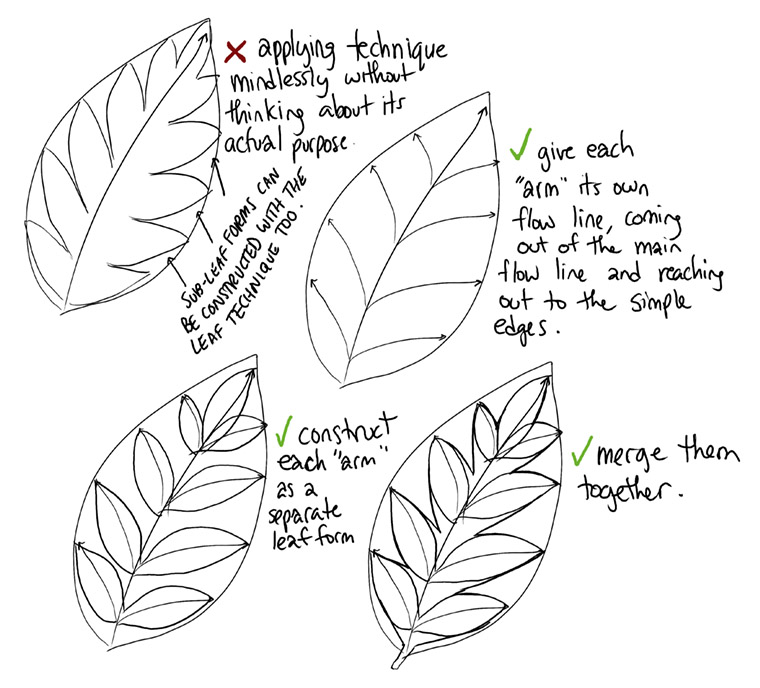 applying technique
mindlessly without
thinking about its
actual purpose.
SUB-LEAF FORMS CAN
BE CONSTRUCTED WITH THE
LEAF TECHNIQUE TOO.
give each
"arm" its own
flow line, coming
out of the main
flow line and reaching
out to the simple
edges.
construct
each "arm"
as a
separate
leaf form
merge them
together.